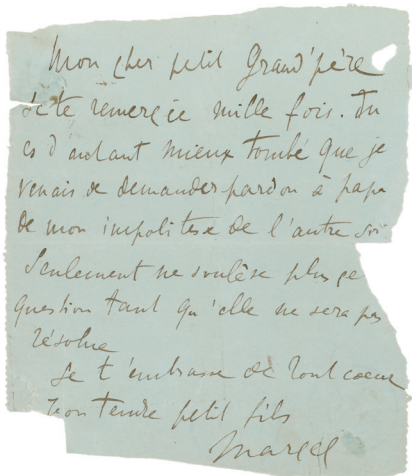 Mon cher petit Grand'père
Je te remercie mille fois. Tu
es d'autant mieux tombé que je
venais de demander pardon à papa
de mon impolitesse de l'autre soir
Seulement ne soulève plus ce
question tant qu'elle ne sera pas
résolue
Je t'embrasse de tout coeur
ton tendre petit fils
Marcel